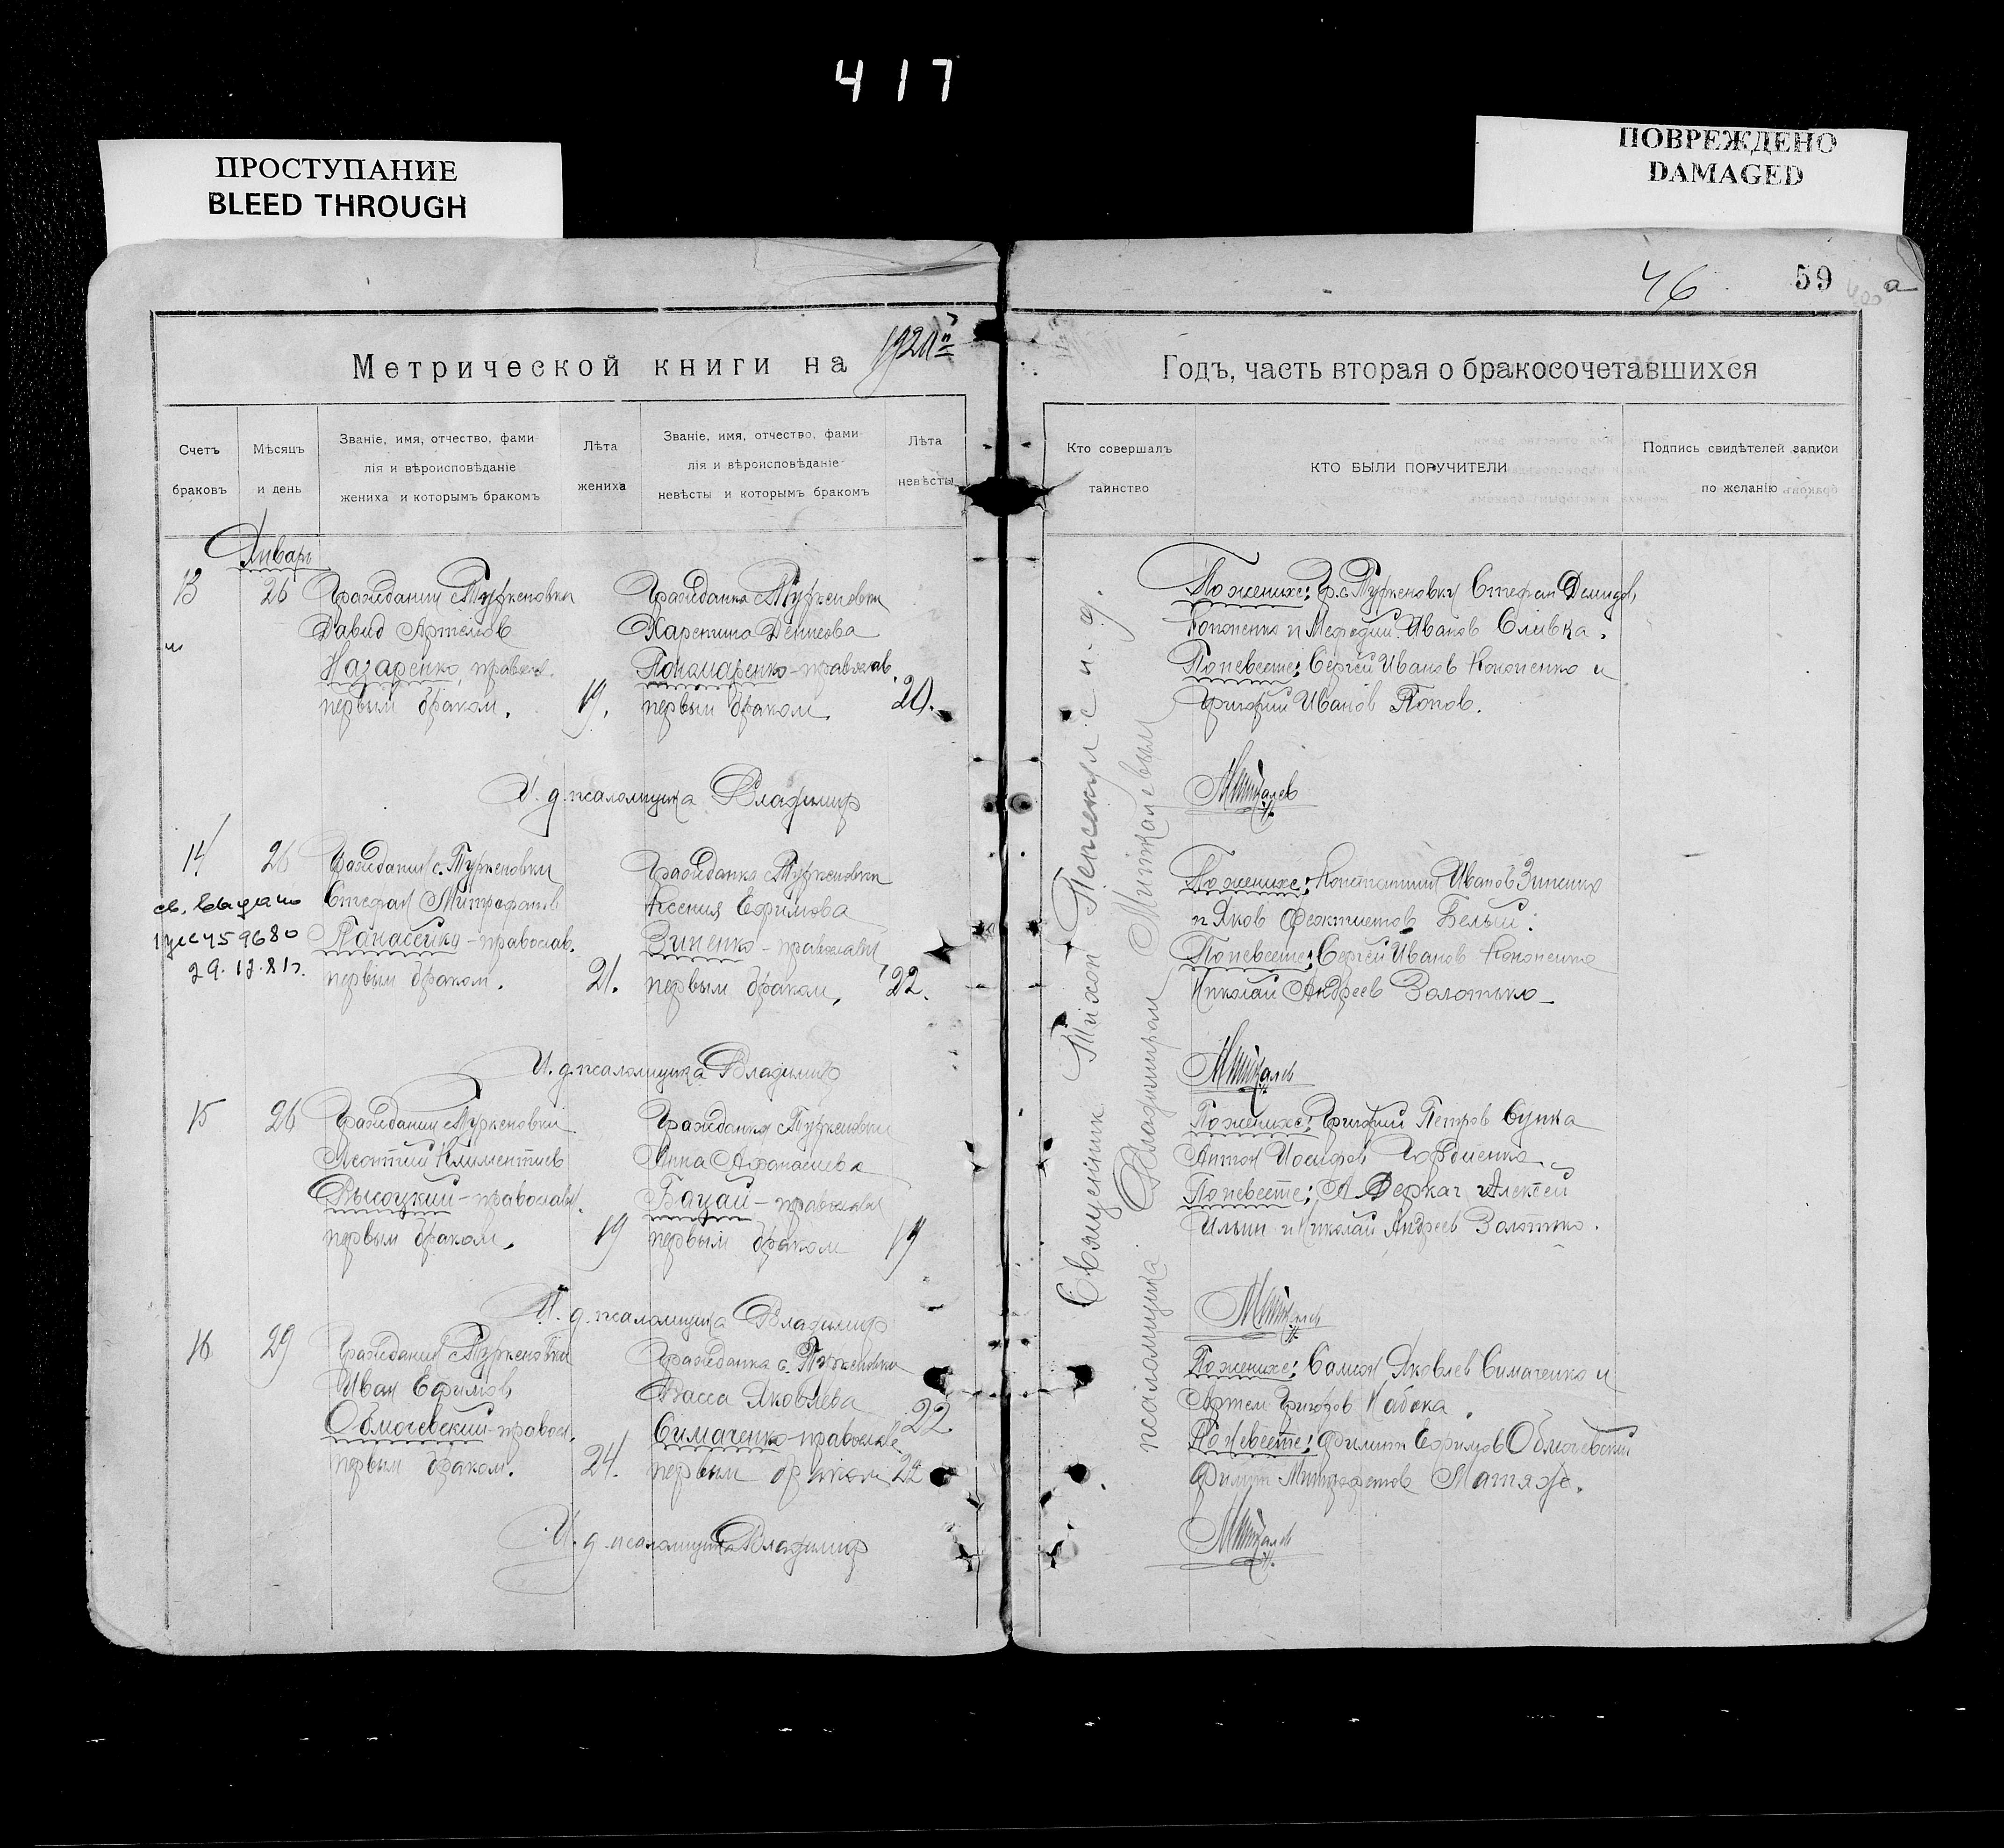 417
ПРОСТУПАНИЕ
BLEED THROUGH
ПОВРЕЖДЕНО
DAMAGED
46
59
а
Метрической книги на 1920
Годъ, часть вторая о бракосочетавшихся
Счетъ браковъ
Мѣсяцъ и день
Званіе, имя, отчество, фами-
лія и вѣроисповѣданіе
жениха и которымъ бракомъ
Лѣта жениха
Званіе, имя, отчество, фами-
лія и вѣроисповѣданіе
невѣсты и которымъ бракомъ
Лѣта невѣсты
Кто совершалъ таинство
КТО БЫЛИ ПОРУЧИТЕЛИ
Подпись свидѣтелей записи
по желанію
Январь
13
26
Гражданин с Туркеновки
Давид Артемов
Назаренко, правосл.
первым браком.
19.
Гражданка с Туркеновки
Харетина
Пономаренко - православ.
первым браком.
20.
По женихе: Гр. с. Туркеновки Стефан Демидов
Кононенко и Мефодий Иванов Сливка.
По невесте: Сергей Иванов Кононенко и
Григорий Иванов Попов.
И. д. псаломщика Владимир
14
26
Гражданин с. Туркеновки
Стефан Митрофанов
Панасейко - православ.
первым браком.
21.
св. выдано
459680
29.12.81г.
Гражданка с Туркеновки
Ксения Ефимова
Зиненко - православн
первым браком,
22.
По женихе: Константин Иванов Зиненко
и Яков Феоктистов Белый:
По невесте: Сергей Иванов Кононенко
Николай Андреев Золотько
И. д. псаломщика Владимир
15
26
Гражданин с Туркеновки
Леонтий Климентиев
Высоцкий - православн.
первым браком.
19
Гражданка с Туркеновки
Анна Афанасиева
Бацай - православн
первым браком
19
По женихе: Григорий Петров Супка
Антон Иосифов Гордиенко
По невесте: Деркач Алексей
Ильин и Николай Андреев Золотько.
И. д. псаломщика Владимир
16
29
Гражданин с Туркеновки
Иван Ефимов
Обмочевский - правосл.
первым браком.
24.
Гражданка с. Туркеновки
Васса Яковлева
Симаченко - православ
первым браком
22
22
По женихе: Самсон Яковлев Симаченко и
Артем Григоров Кабака.
По невесте: Филипп Ефимов Обмочевский
Филипп Митрофанов Матяж.
И. д. псаломщика Владимир
Священник Тихон
псаломщика Владимир